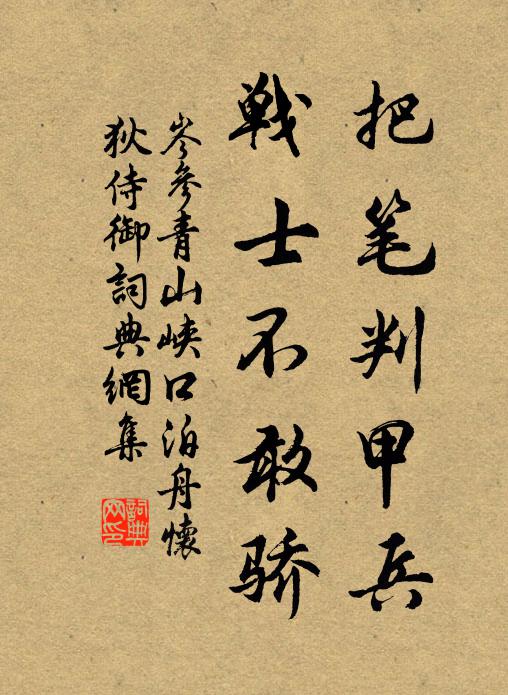 把笔判甲兵
戦士不敢骄
岑參青山峡口泊舟懷
狄侍御詞典網集
詞典
网印